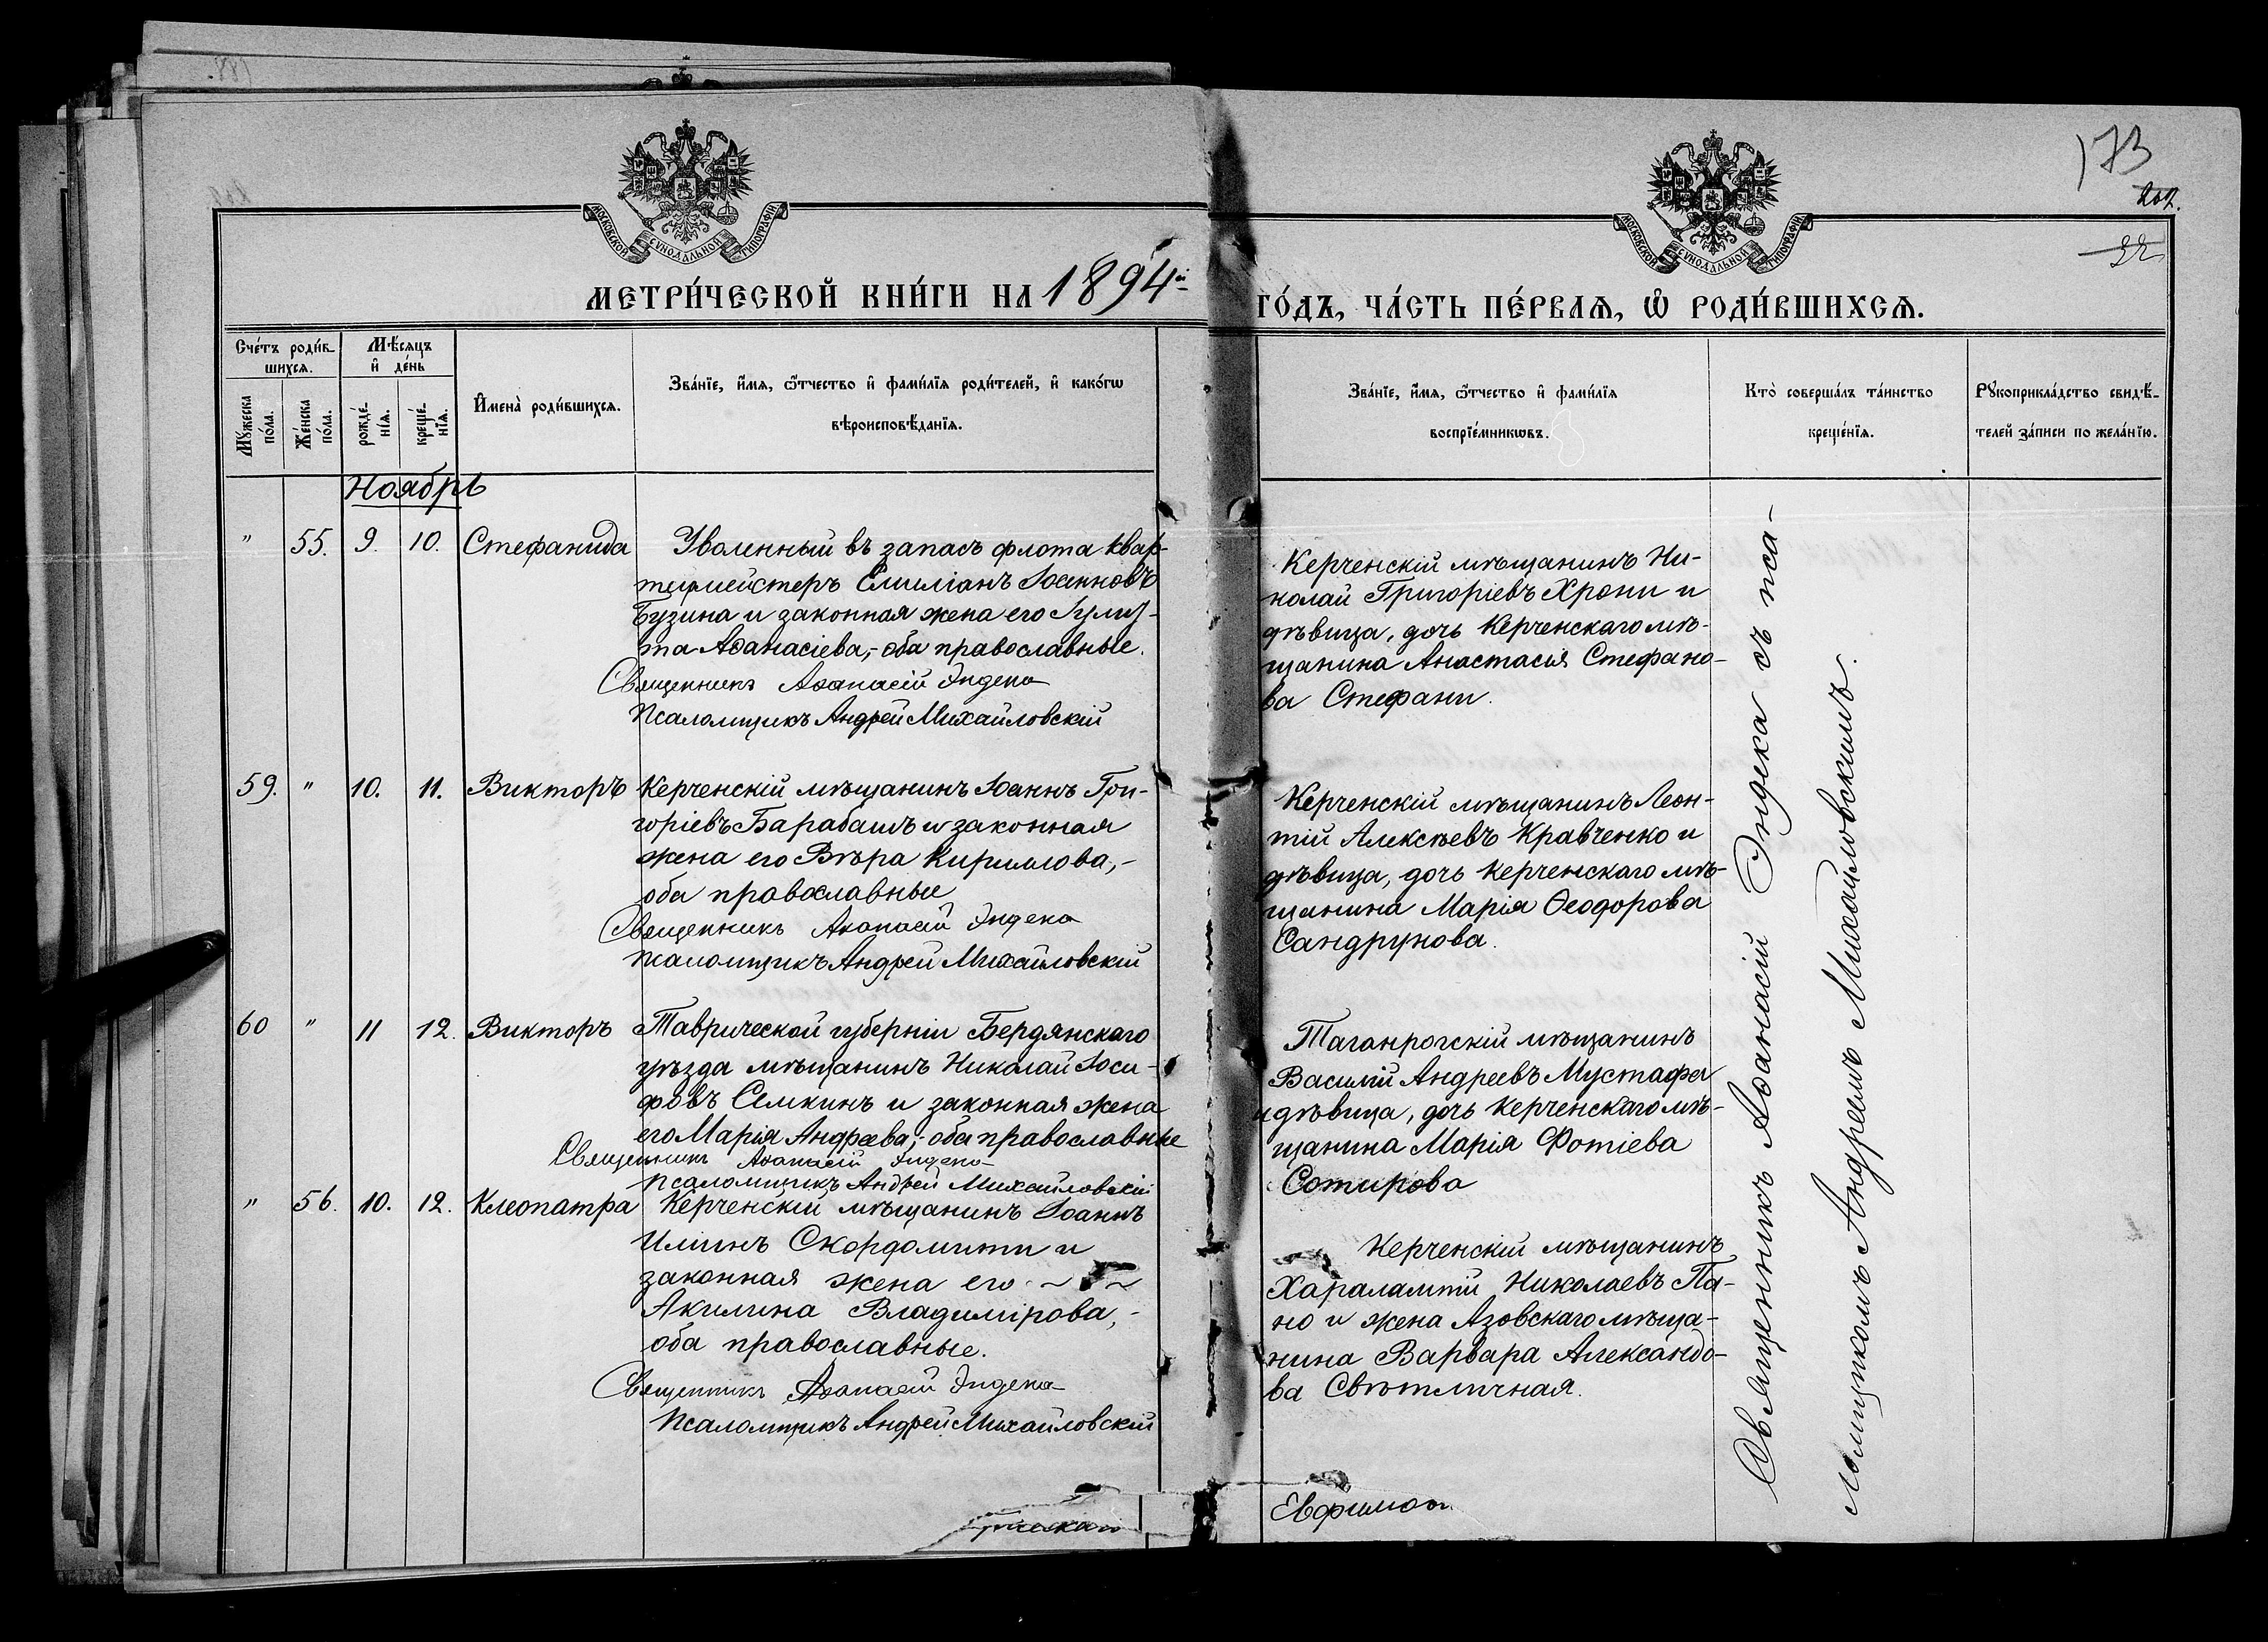 173
202.
22
МОСКОВСКОЙ СУНОДАЛЬНОЙ ТИПОГРАФІИ
МОСКОВСКОЙ СУНОДАЛЬНОЙ ТИПОГРАФІИ
МЕТРИ́ЧЕСКОЙ КНИ́ГИ НА 1894й ГО́ДЪ, ЧА́СТЬ ПЕ́РВАѦ, Ѽ РОДИ́ВШИХСѦ.
Сче́тъ роди́в-
шихся.
Мѣ́сяцъ
и҆ де́нь
Мꙋ́жеска по́ла.
Же́нска по́ла.
рожде́-
нїѧ.
креще́-
нїѧ.
И҆мена̀ роди́вшихся.
Зва́нїе, и҆́мѧ, ѻ҆́тчество и҆ фами́лїѧ роди́телей, и҆ како́гѡ
вѣроисповѣ́данїѧ.
Зва́нїе, и҆́мѧ, ѻ҆́тчество и҆ фами́лїѧ
воспрїе́мникѡвъ.
Кто̀ соверша́лъ та́инство
креще́нїѧ.
Рꙋкоприкла́дство свидѣ́-
телей за́писи по жела́нїю.
Ноябрь
" 55. 9. 10. Стефанида
Уволенный въ запасъ флота квар-
тирмейстеръ Емиліанъ Іоанновъ
Бузина и законная жена его Гули-
та Аѳанасіева,- оба православные.
Священникъ Аѳанасій Эндека
Псаломщикъ Андрей Михайловскій
Керченскій мѣщанинъ Ни-
колай Григоріевъ Хрони и
дѣвица, дочь Керченскаго мѣ-
щанина Анастасія Стефано-
ва Стефани.
59. " 10. 11. Викторъ
Керченскій мѣщанинъ Іоаннъ Гри-
горіевъ Барабашъ и законная
жена его Вѣра Кириллова,-
оба православные
Священникъ Аѳанасій Эндека
Псаломщикъ Андрей Михайловскій
Керченскій мѣщанинъ Леон-
тій Алексѣевъ Кравченко и
дѣвица, дочь Керченскаго мѣ-
щанина Марія Ѳеодорова
Сандрунова.
60 " 11 12. Викторъ
Таврической губерніи Бердянскаго
уѣзда мѣщанинъ Николай Іоси-
фовъ Семкинъ и законная жена
его Марія Андреева,- оба православные
Священникъ Аѳанасій Эндека
Псаломщикъ Андрей Михайловскій
Таганрогскій мѣщанинъ
Василій Андреевъ Мустафа
и дѣвица, дочь Керченскаго мѣ-
щанина Марія Фотіева
Сотирова
" 56. 10. 12. Клеопатра
Керченскій мѣщанинъ Іоаннъ
Иліинъ Скордомити и
законная жена его
Акилина Владимірова,-
оба православные.
Священникъ Аѳанасій Эндека
Псаломщикъ Андрей Михайловскій
Керченскій мѣщанинъ
Харалампій Николаевъ Па-
но и жена Азовскаго мѣща-
нина Варвара Александо-
ва Свѣтличная.
Священникъ Аѳанасій Эндека съ пса-
ломщикомъ Андреемъ Михайловскимъ.